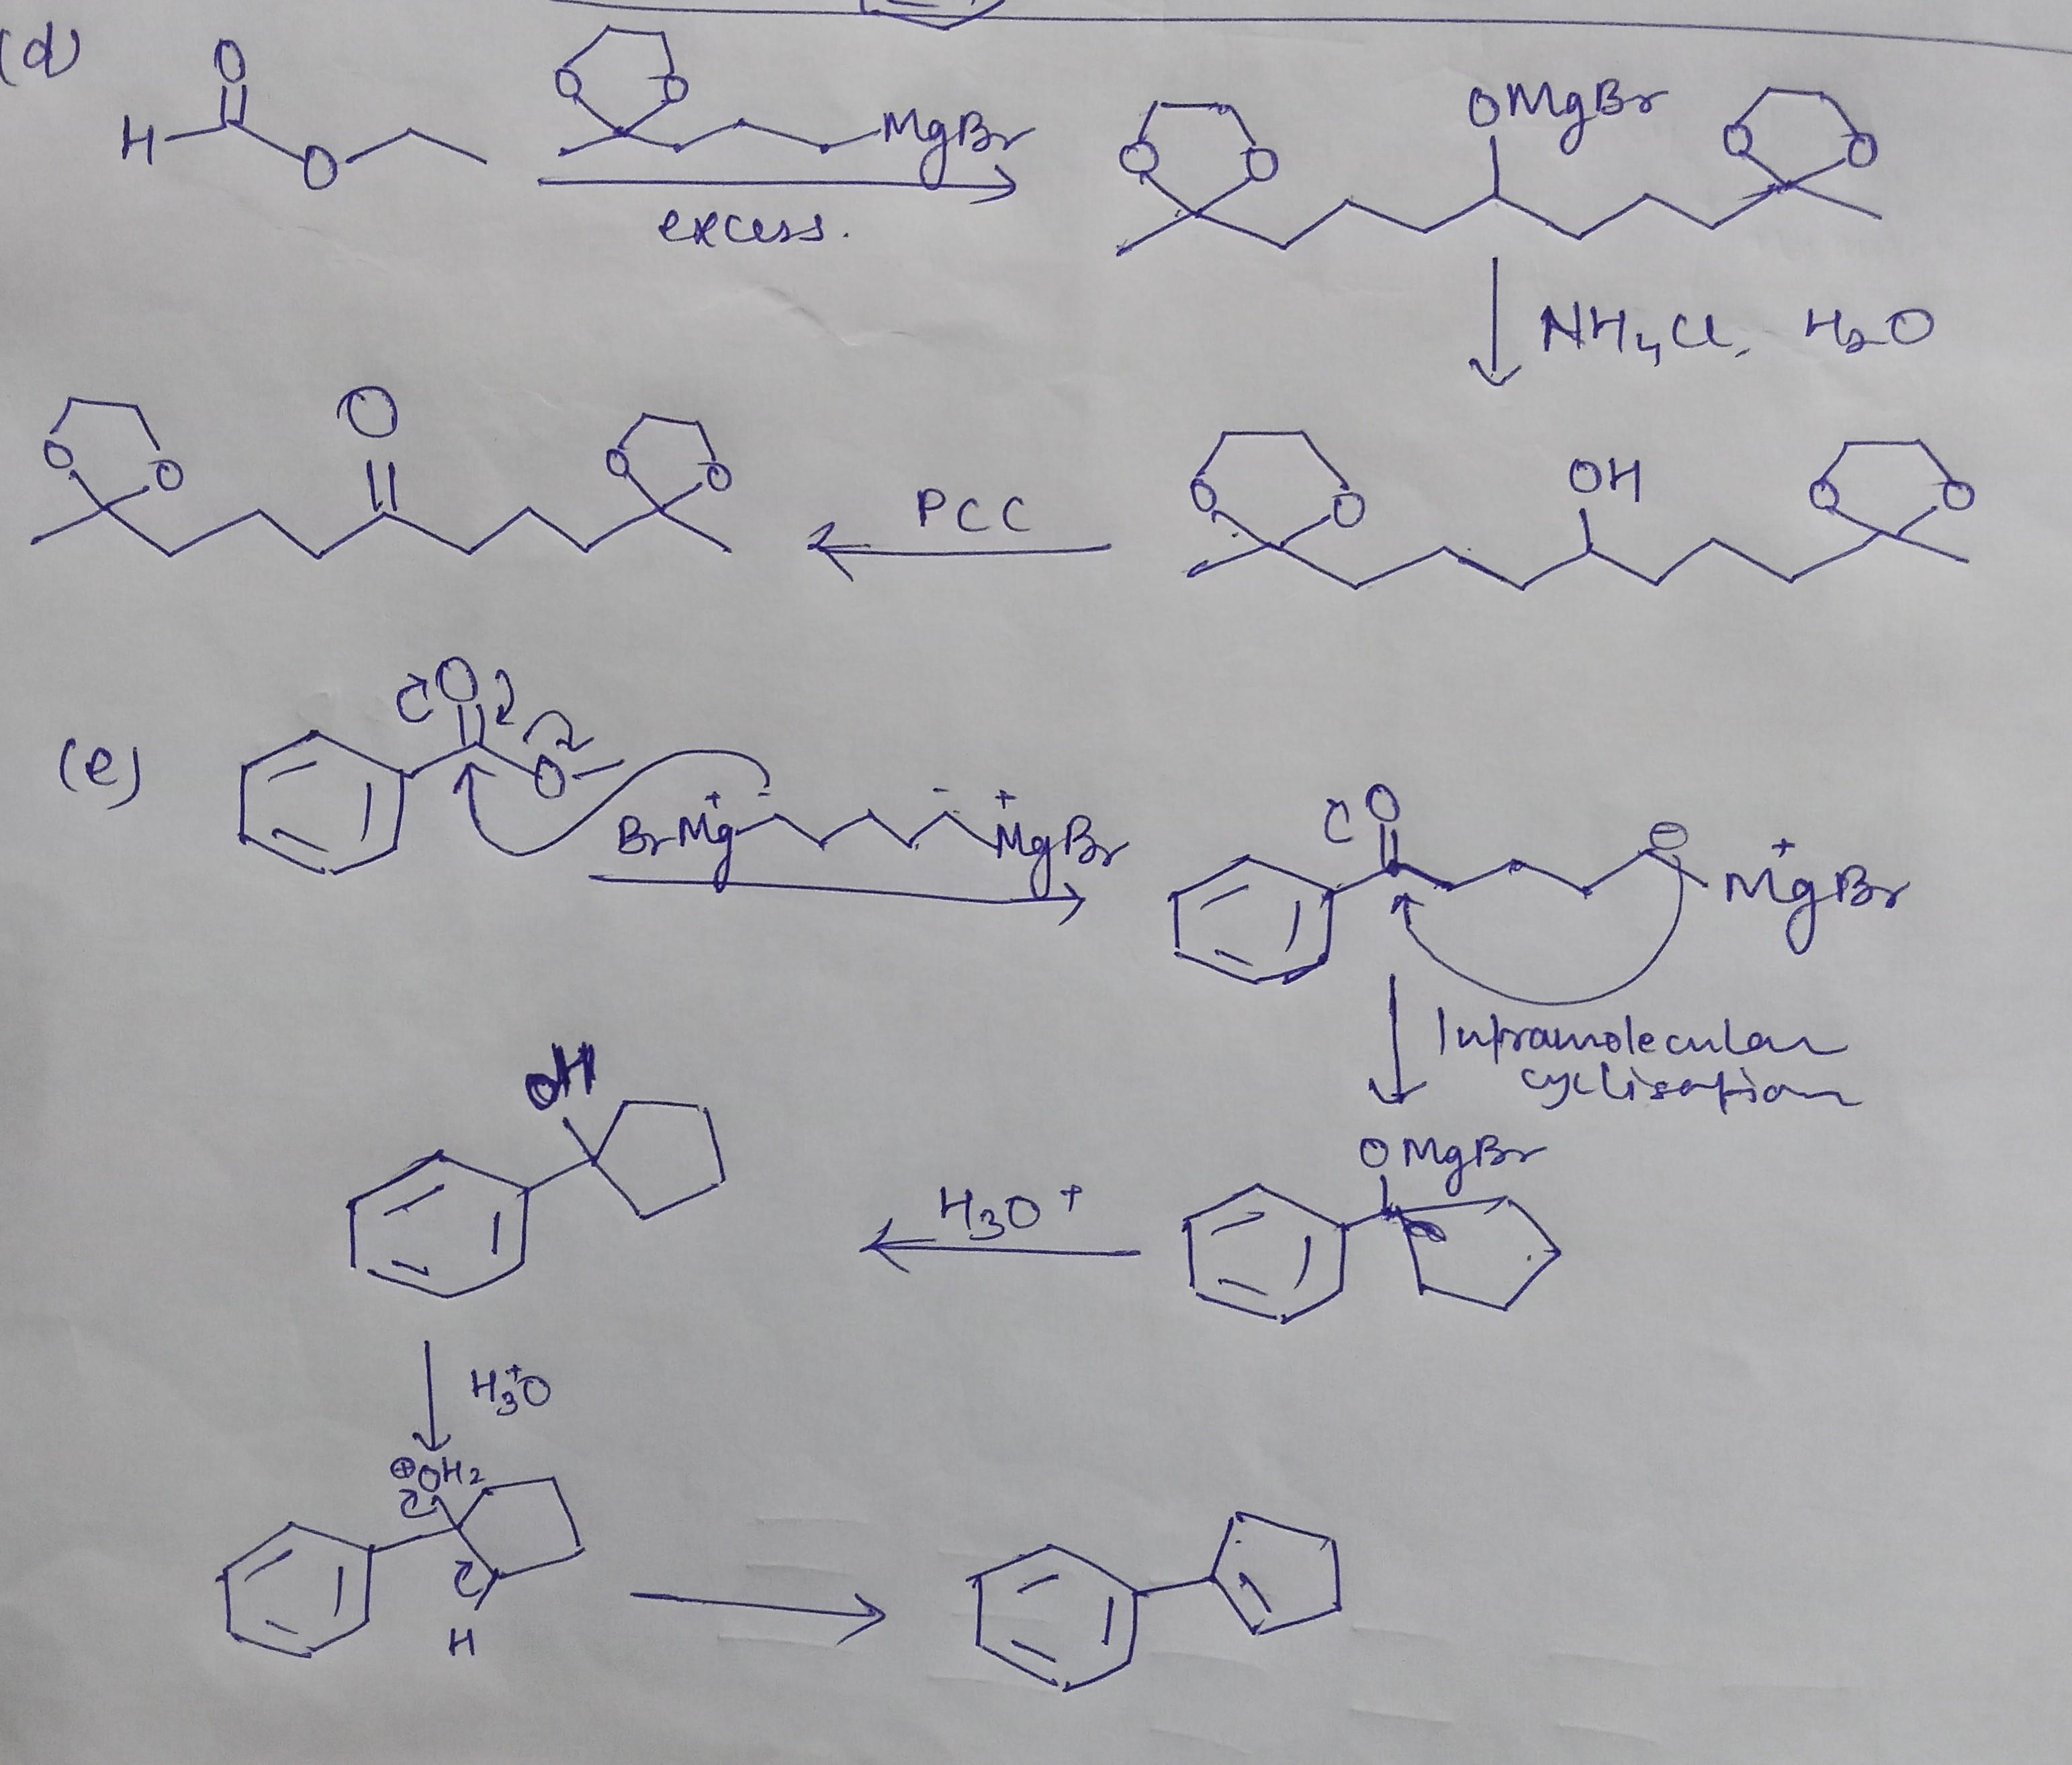 (d)
O
H O
O O MgBr
excess.
OMgBr
O O O O
NH4Cl, H2O
O
O O O O
PCC
OH
O O O O
(e)
O
O
BrMg + - - + MgBr
O
⊖ + MgBr
Intramolecular
cyclisation
OMgBr
H3O+
OH
H3+O
⊕OH2
H